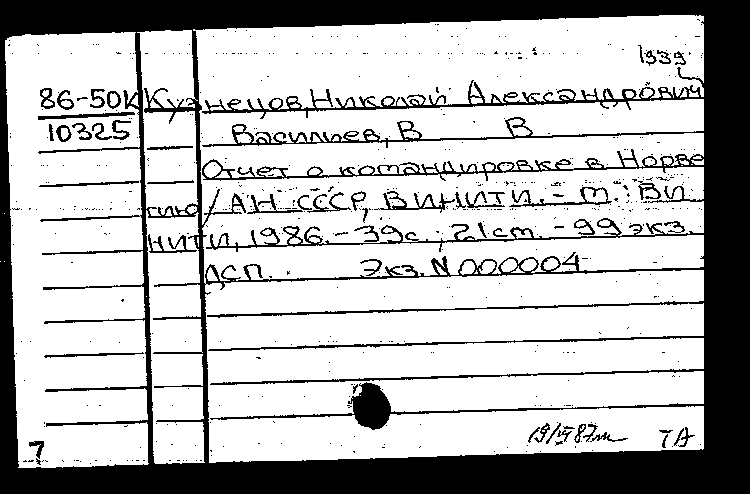 1939
86-50К Кузнецов, Николай Александрович
10325 Васильев, В В
Отчет о командировке в Норве
гию / АН СССР, ВИНИТИ. - М.: ВИ
НИТИ, 1986. - 39с.; 21 см. - 99 экз.
ДСП. Экз. N 000004
7 ТА